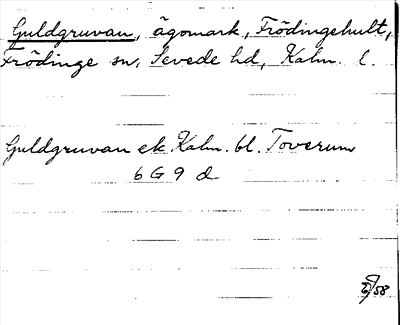 Guldgruvan, ägomark, Frödingehult,
Frödinge sn, Sevede hd, Kalm. l.
Guldgruvan ek. Kalm. bl. Toverum
6 G 9 d
58